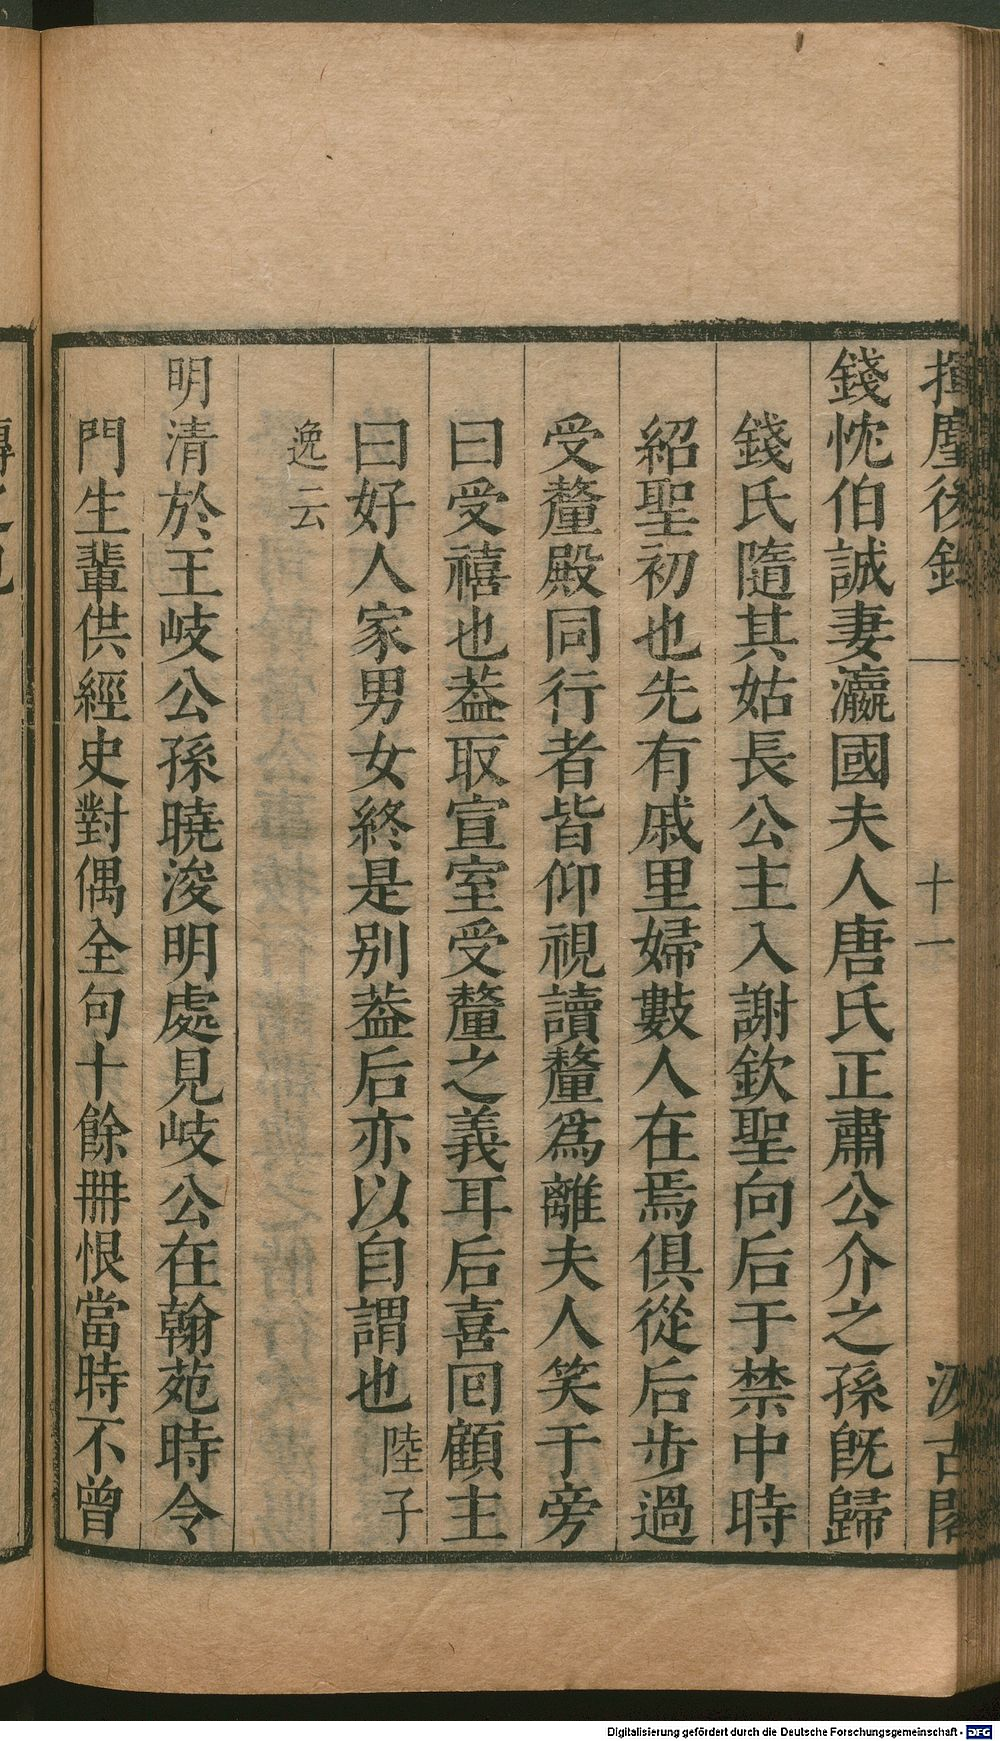 揮麈後錄
十一
汲古閣
錢忱伯誠妻瀛國夫人唐氏正肅公介之孫旣歸
錢氏隨其姑長公主入謝欽聖向后于禁中時
紹聖初也先有戚里婦數人在焉俱從后步過
受釐殿同行者皆仰視讀釐爲離夫人笑于旁
曰受禧也葢取宣室受釐之義耳后喜回顧主
曰好人家男女終是别葢后亦以自謂也陸子
逸云
明清於王岐公孫曉浚明處見岐公在翰苑時令
門生輩供經史對偶全句十餘冊恨當時不曾
Digitalisierung gefördert durch die Deutsche Forschungsgemeinschaft - DFG